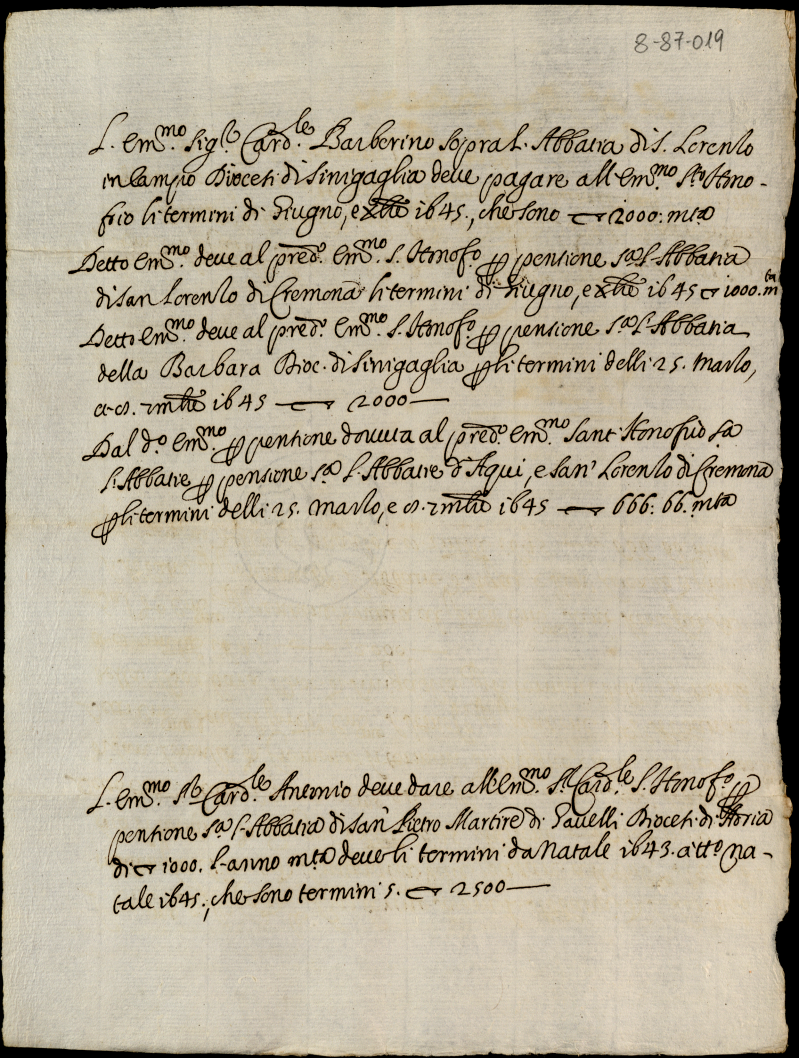 8-87-019
L. Em.mo Sig.r Card.le Barberino sopra l'Abbatia di S. Lorenzo
in Campio Diocesi di Sinigaglia deve pagare all'Em.mo S.to Hono-
frio li termini di Giugno, e Xbre 1645., che sono 2000: mta
Detto Em.mo deve al pred.o Em.mo S. Honof.o p pensione s.a l'Abbatia
di San Lorenzo di Cremona li termini di Giugno, e Xbre 1645 1000. mta
Detto Em.mo deve al pred.o Em.mo S. Honof.o p pensione s.a l'Abbatia
della Barbara Dioc. di Sinigaglia p li termini delli 25. Marzo,
e 8. 7mbre 1645 — 2000 —
Dal d.o Em.mo p pentione dovuta al pred.o Em.mo Sant'Honofrio s.a
l'Abbatie p pensione s.a l'Abbatie d'Aqui, e San Lorenzo di Cremona
p li termini delli 25. Marzo, e 8. 7mbre 1645 — 666: 66. mta
L. Em.mo S.r Card.le Antonio deve dare all'Em.mo S.r Card.le S. Honof.o p
pentione s.a l'Abbatia di San Pietro Martire di Diocesi di
di 1000. l'anno mta deve li termini da Natale 1643. a tto Na-
tale 1645., che sono termini 5. 2500 —